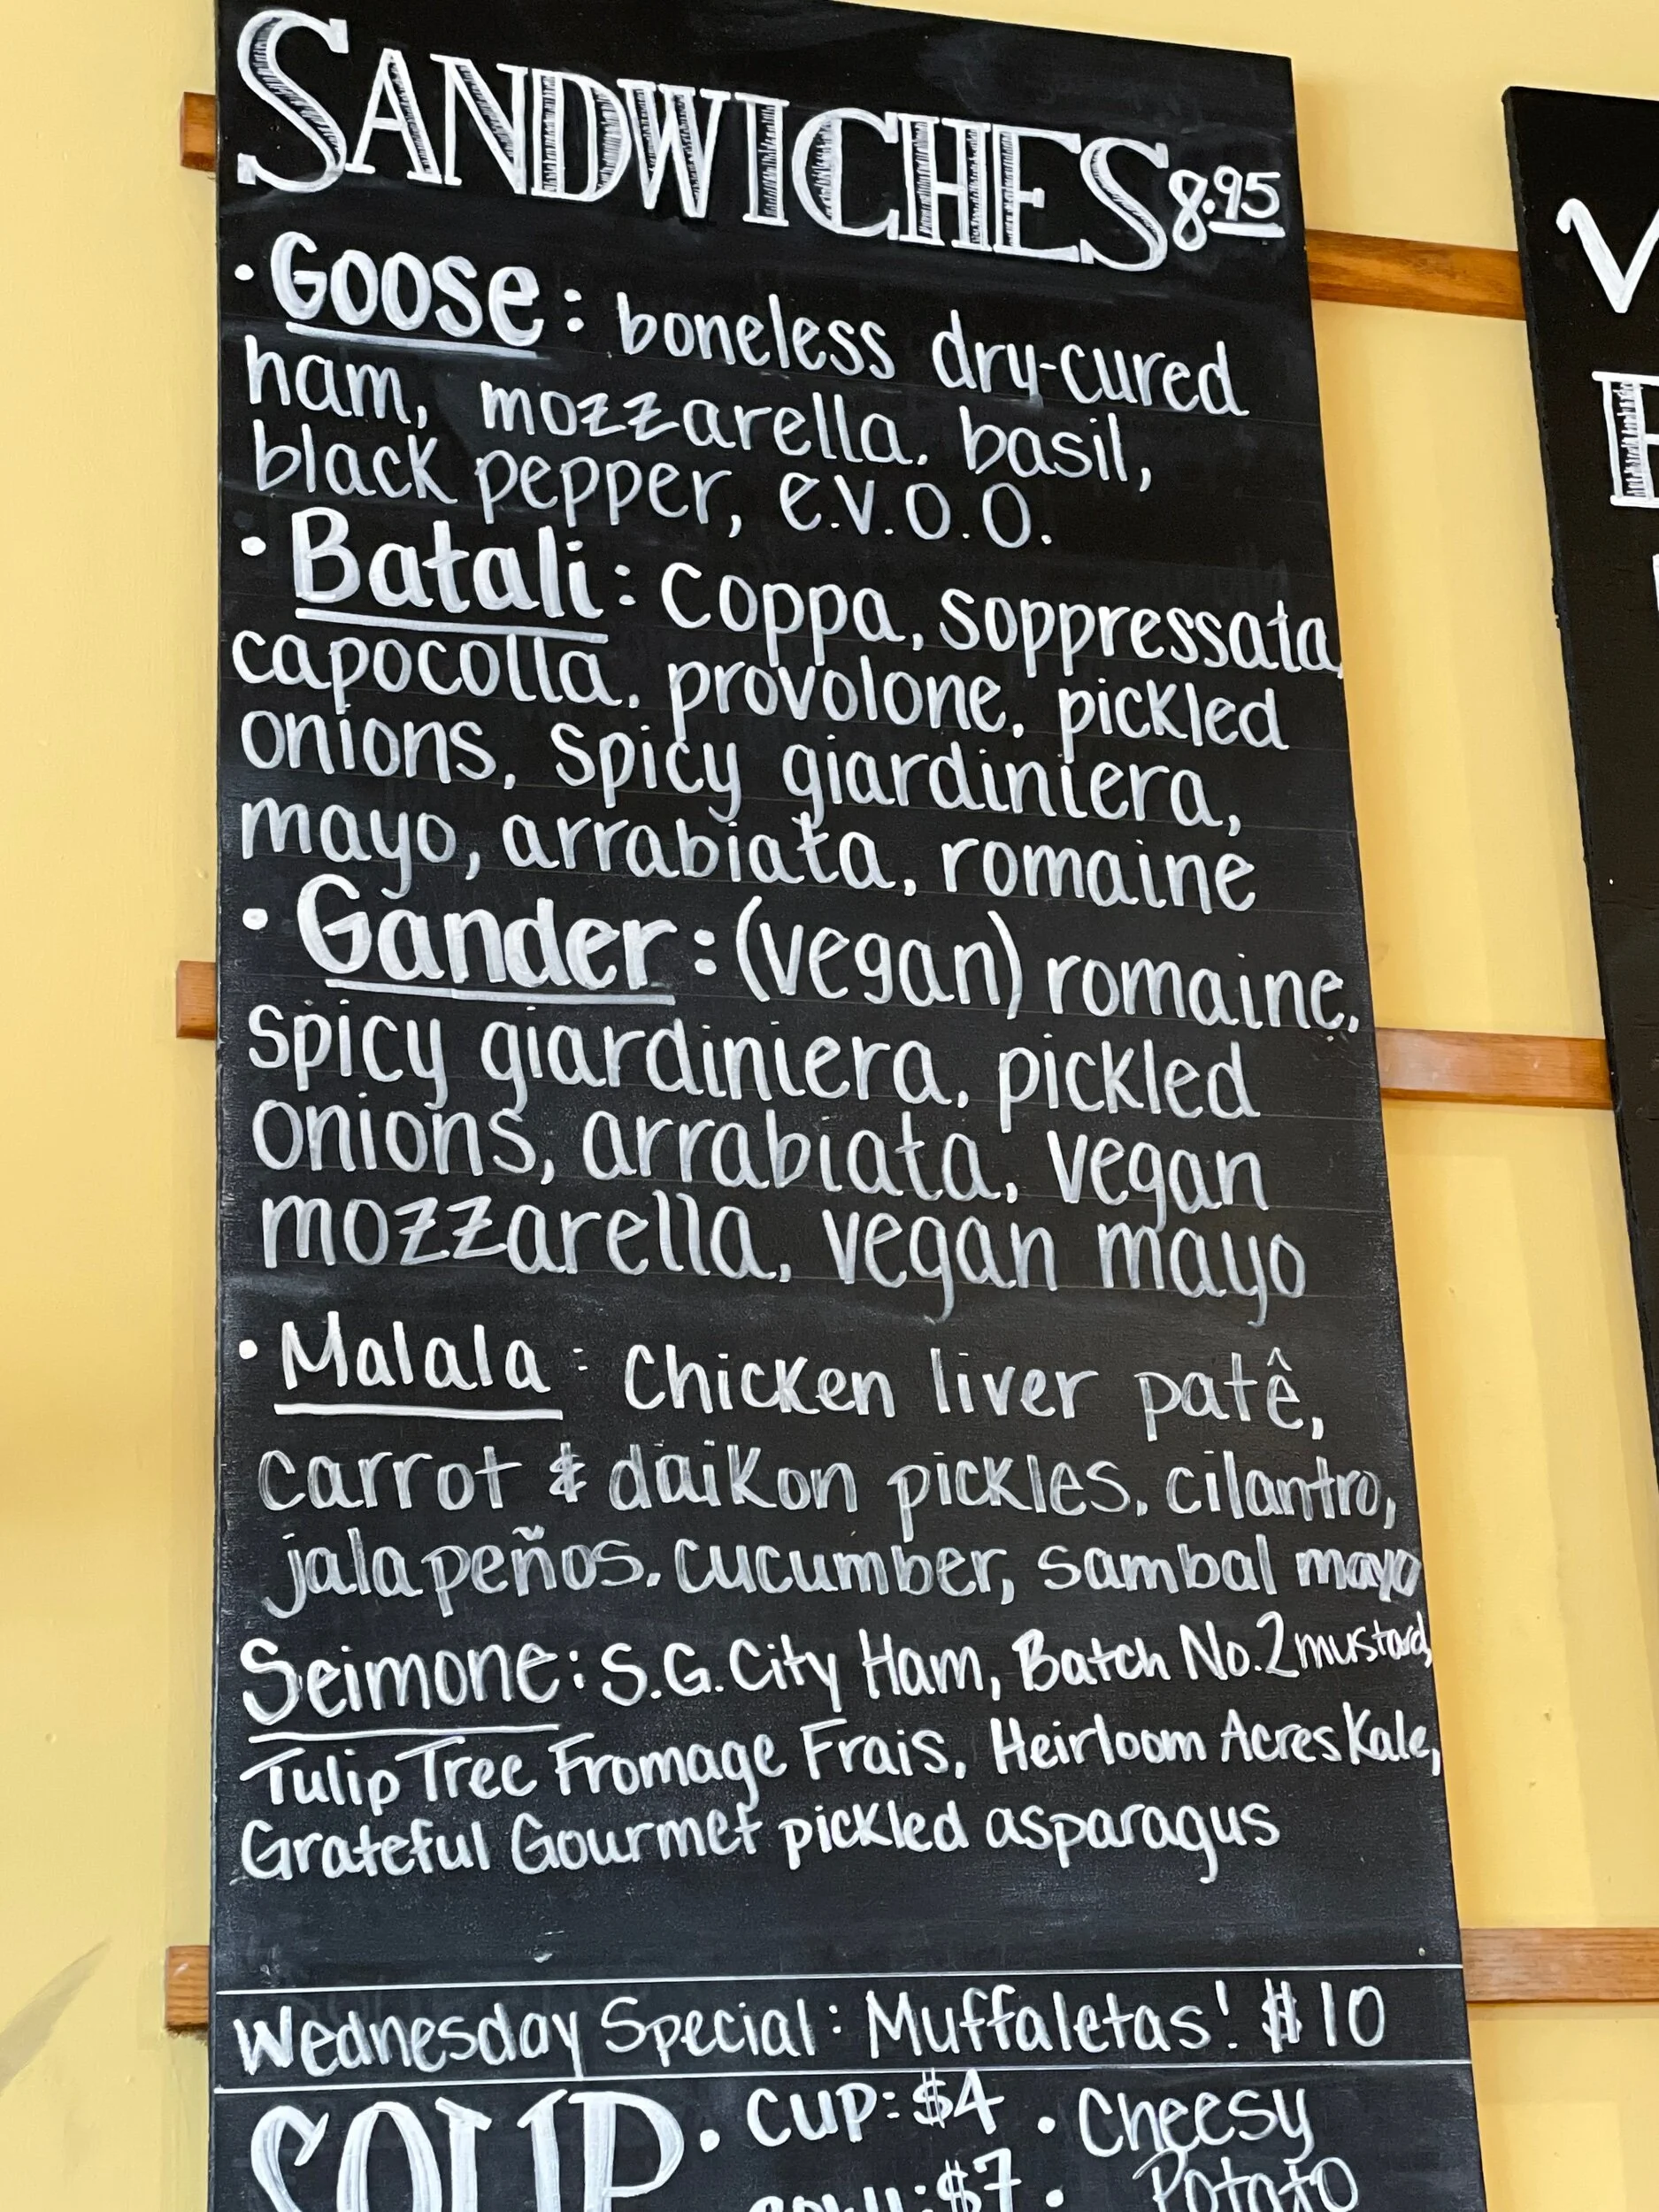 SANDWICHES 8.95
• Goose: boneless dry-cured
ham, mozzarella, basil,
black pepper, e.v.o.o.
• Batali: coppa, soppressata,
capocolla, provolone, pickled
onions, spicy giardiniera,
mayo, arrabiata, romaine
• Gander: (vegan) romaine,
spicy giardiniera, pickled
onions, arrabiata, vegan
mozzarella, vegan mayo
• Malala: Chicken liver patê,
carrot & daikon pickles, cilantro,
jalapeños, cucumber, sambal mayo
Seimone: S.G. City Ham, Batch No. 2 mustard,
Tulip Tree Fromage Frais, Heirloom Acres Kale,
Grateful Gourmet pickled asparagus
Wednesday Special: Muffaletas! $10
SOUP • Cup: $4 • Cheesy
Bowl: $7 • Potato